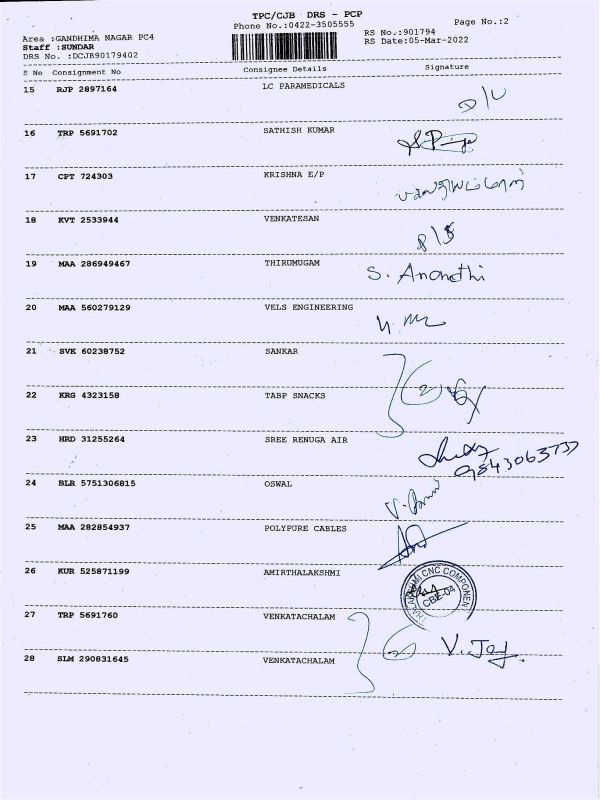 TPC/CJB DRS - PCP
Phone No.:0422-3505555
Page No.:2
Area :GANDHIMA NAGAR PC4
RS No.:901794
Staff :SUNDAR
RS Date:05-Mar-2022
DRS No. :DCJB90179402
S No Consignment No Consignee Details Signature
15 RJP 2897164 LC PARAMEDICALS
16 TRP 5691702 SATHISH KUMAR
17 CPT 724303 KRISHNA E/P
18 KVT 2533944 VENKATESAN
19 MAA 286949467 THIRUMUGAM S. Anandhi
20 MAA 560279129 VELS ENGINEERING
21 SVK 60238752 SANKAR
22 KRG 4323158 TABP SNACKS
23 HRD 31255264 SREE RENUGA AIR
9843063737
24 BLR 5751306815 OSWAL
25 MAA 282854937 POLYPURE CABLES
26 KUR 525871199 AMIRTHALAKSHMI
CNC COMPONENT
CBE-04
27 TRP 5691760 VENKATACHALAM
28 SLM 290831645 VENKATACHALAM